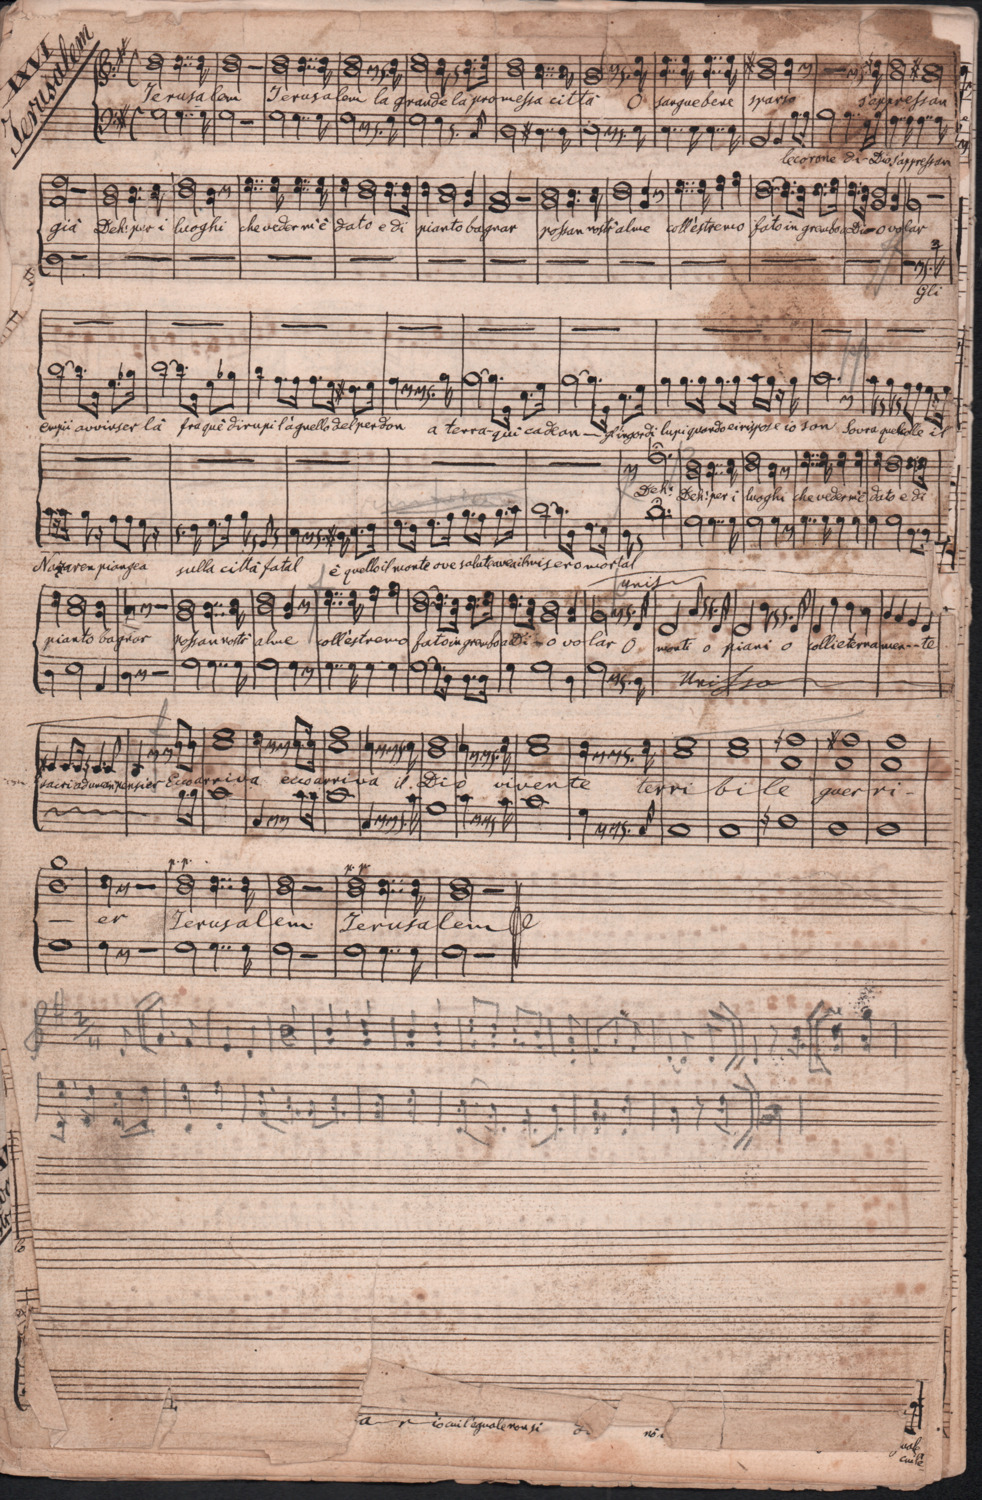 IXVI
Jerusalem
Jerusalem Jerusalem la grande la promessa città O sangue bene sparso s'appressan
le corone di Dio s'appressan
già Deh! per i luoghi che veder n'è dato e di pianto bagnar possan nostr'alme coll'estremo fato in grembo a Dio volar
Gli
empii avvinser là fra què dirupi l'agnello del perdon a terra qui cadean gl'ingordi lupi quando ei rispose io son Sovra quel colle il
Deh! Deh! per i luoghi che veder n'è dato e di
Nazaren piangea sulla città fatal è quello il monte ove salute avea il misero mortal
unis
pianto bagnar possan nostr'alme coll'estremo fato in grembo a Dio volar O monti o piani o colli eternamente
Unisso
sacri ad uman pensier Ecco arriva ecco arriva il Dio vivente terribile guerri-
p.p. p.p.
er Jerusalem Jerusalem
2/4
a io cui l'eguale non si